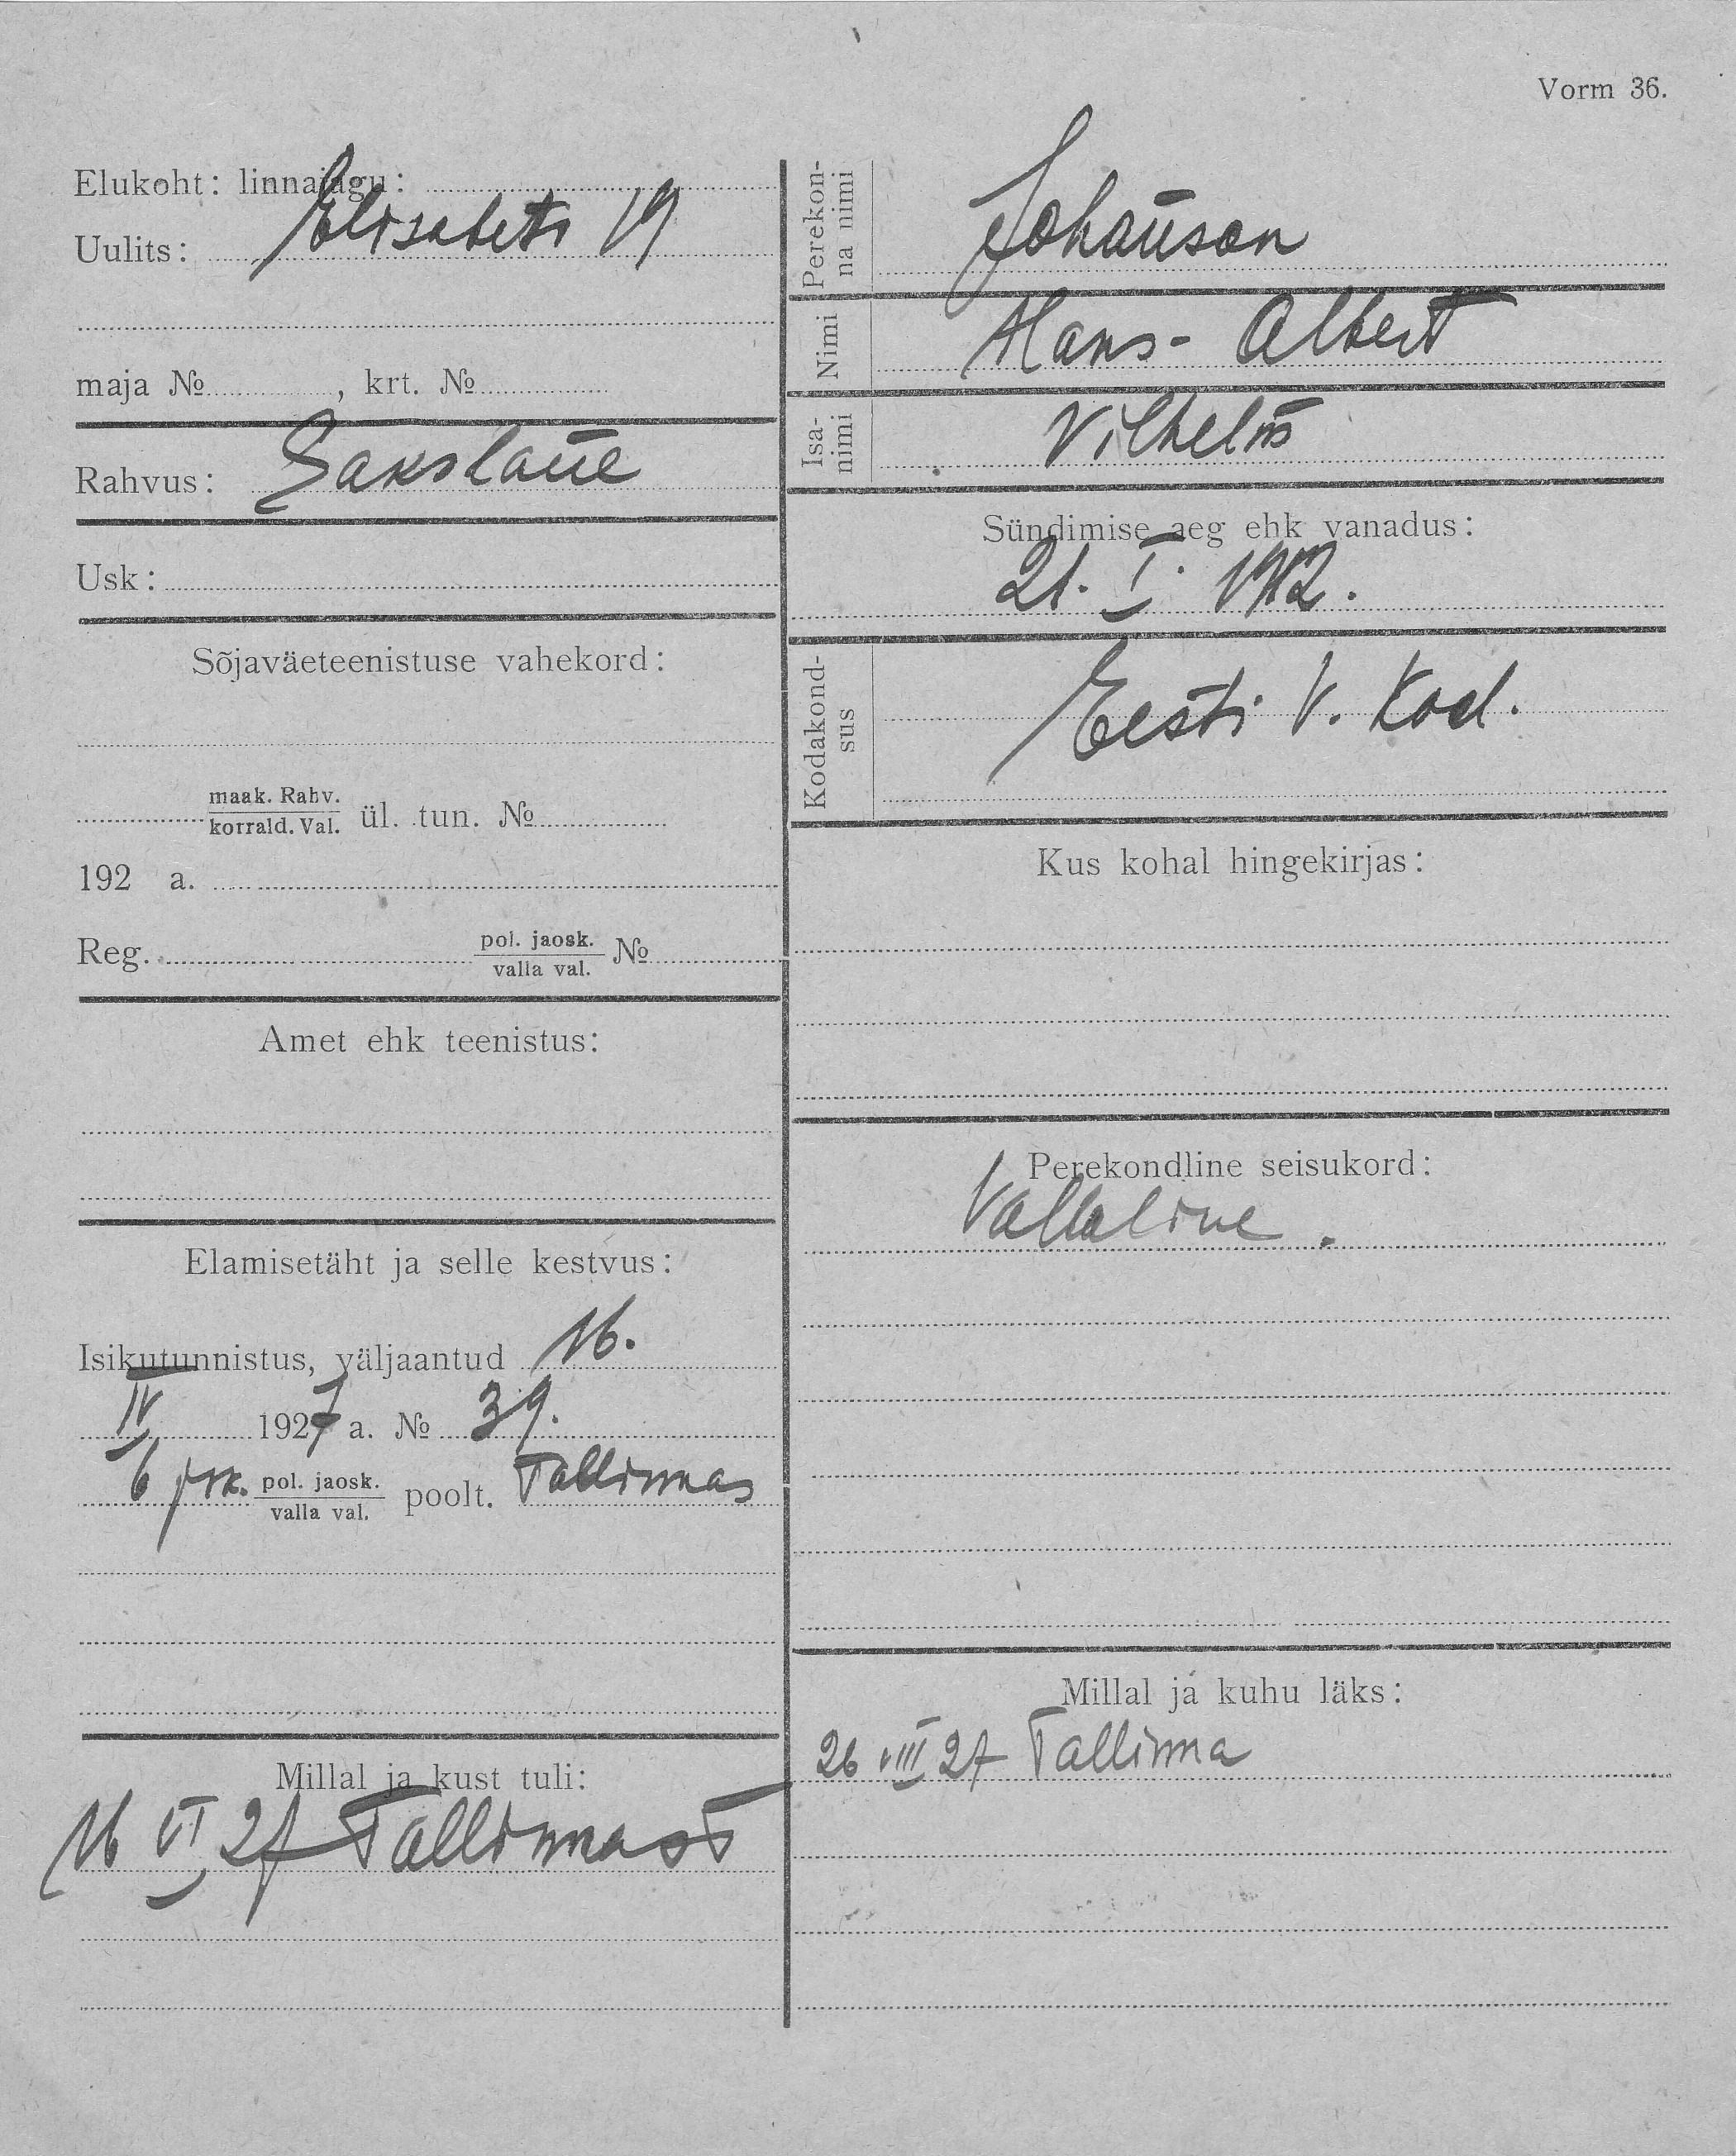 Vorm 36.
Elukoht: linnajagu:
Uulits: Elisabeti 19
maja № , krt. №
Rahvus: Sakslane
Usk:
Sõjaväeteenistuse vahekord:
maak. Rahv.
korrald. Val. ül. tun. №
192 a.
Reg. pol. jaosk. №
valla val.
Amet ehk teenistus:
Elamisetäht ja selle kestvus:
Isikutunnistus, väljaantud 16.
IV 1927 a. № 39.
6 jsk. pol. jaosk. poolt. Tallinnas
valla val.
Millal ja kust tuli:
16 VI 27 Tallinnast
Perekon-
na nimi Johanson
Nimi Hans-Albert
Isa-
nimi Vilhelm
Sündimise aeg ehk vanadus:
21. I. 1912.
Kodakond-
sus Eesti V. Kod.
Kus kohal hingekirjas:
Perekondline seisukord:
Vallaline.
Millal ja kuhu läks:
26 VIII 27 Tallinna